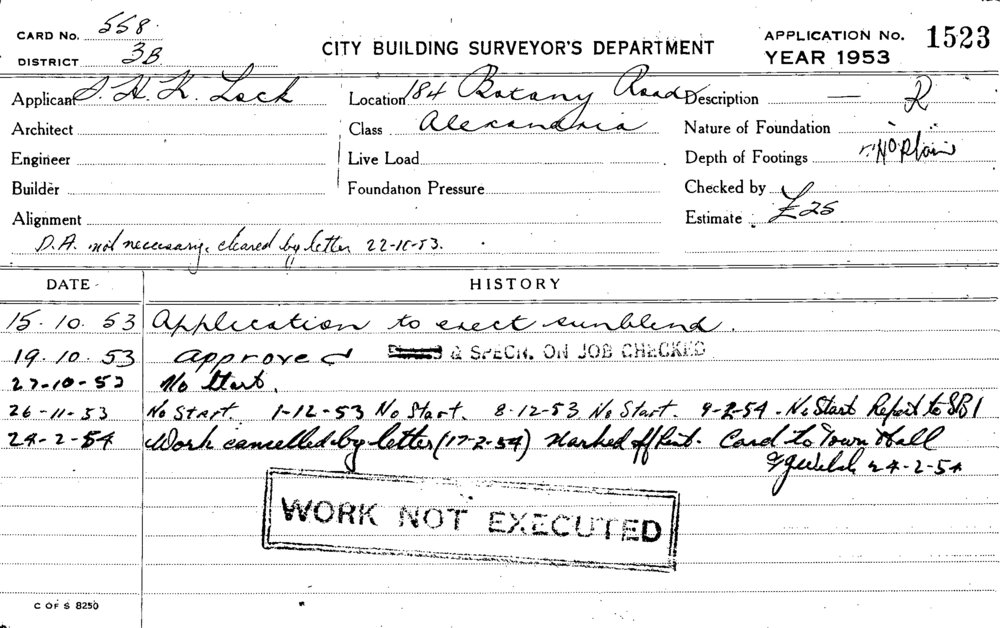 CARD No. 558.
DISTRICT 3B
CITY BUILDING SURVEYOR'S DEPARTMENT
APPLICATION No. 1523
YEAR 1953
Applicant S. H. K. Lock
Location 184 Botany Road
Description — R
Architect
Class Alexandria
Nature of Foundation
Engineer
Live Load
Depth of Footings No Plan
Builder
Foundation Pressure
Checked by
Alignment
Estimate £25
D.A. not necessary, cleared by letter 22-10-53.
DATE HISTORY
15.10.53 Application to erect sunblind.
19.10.53 approved & SPECN. ON JOB CHECKED
27-10-53 No Start.
26-11-53 No Start. 1-12-53 No Start. 8-12-53 No Start. 9-2-54 - No Start Report to SBI
24-2-54 Work cancelled by letter (17-2-54) Marked off List. Card to Town Hall
24-2-54
WORK NOT EXECUTED
C OF S 8250